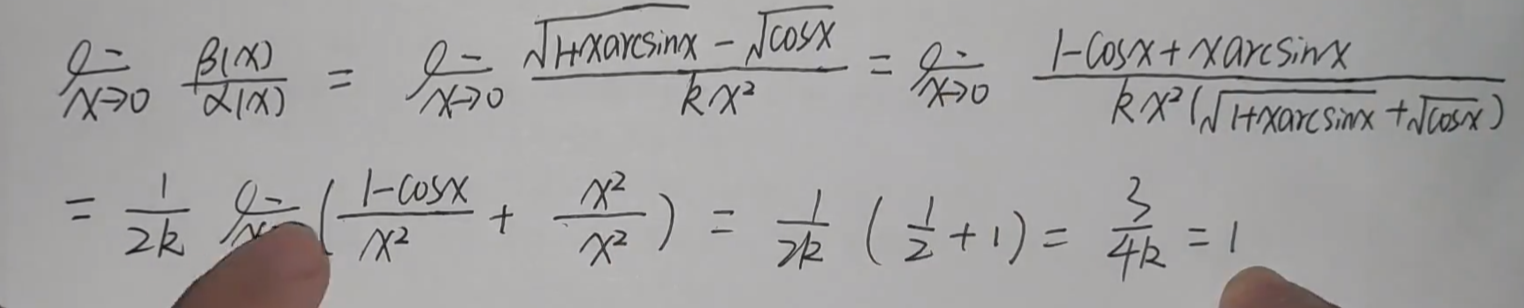 lim x→0 β(x)/α(x) = lim x→0 (√(1+xarcsinx) − √cosx)/(kx²) = lim x→0 (1−cosx+xarcsinx)/(kx²(√(1+xarcsinx)+√cosx))
= 1/(2k) lim ((1−cosx)/x² + x²/x²) = 1/(2k) (1/2+1) = 3/(4k) = 1